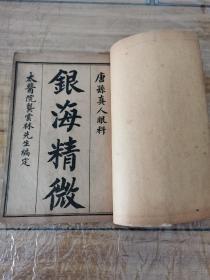 唐孫真人眼科
銀海精微
太醫院龔雲林先生編定